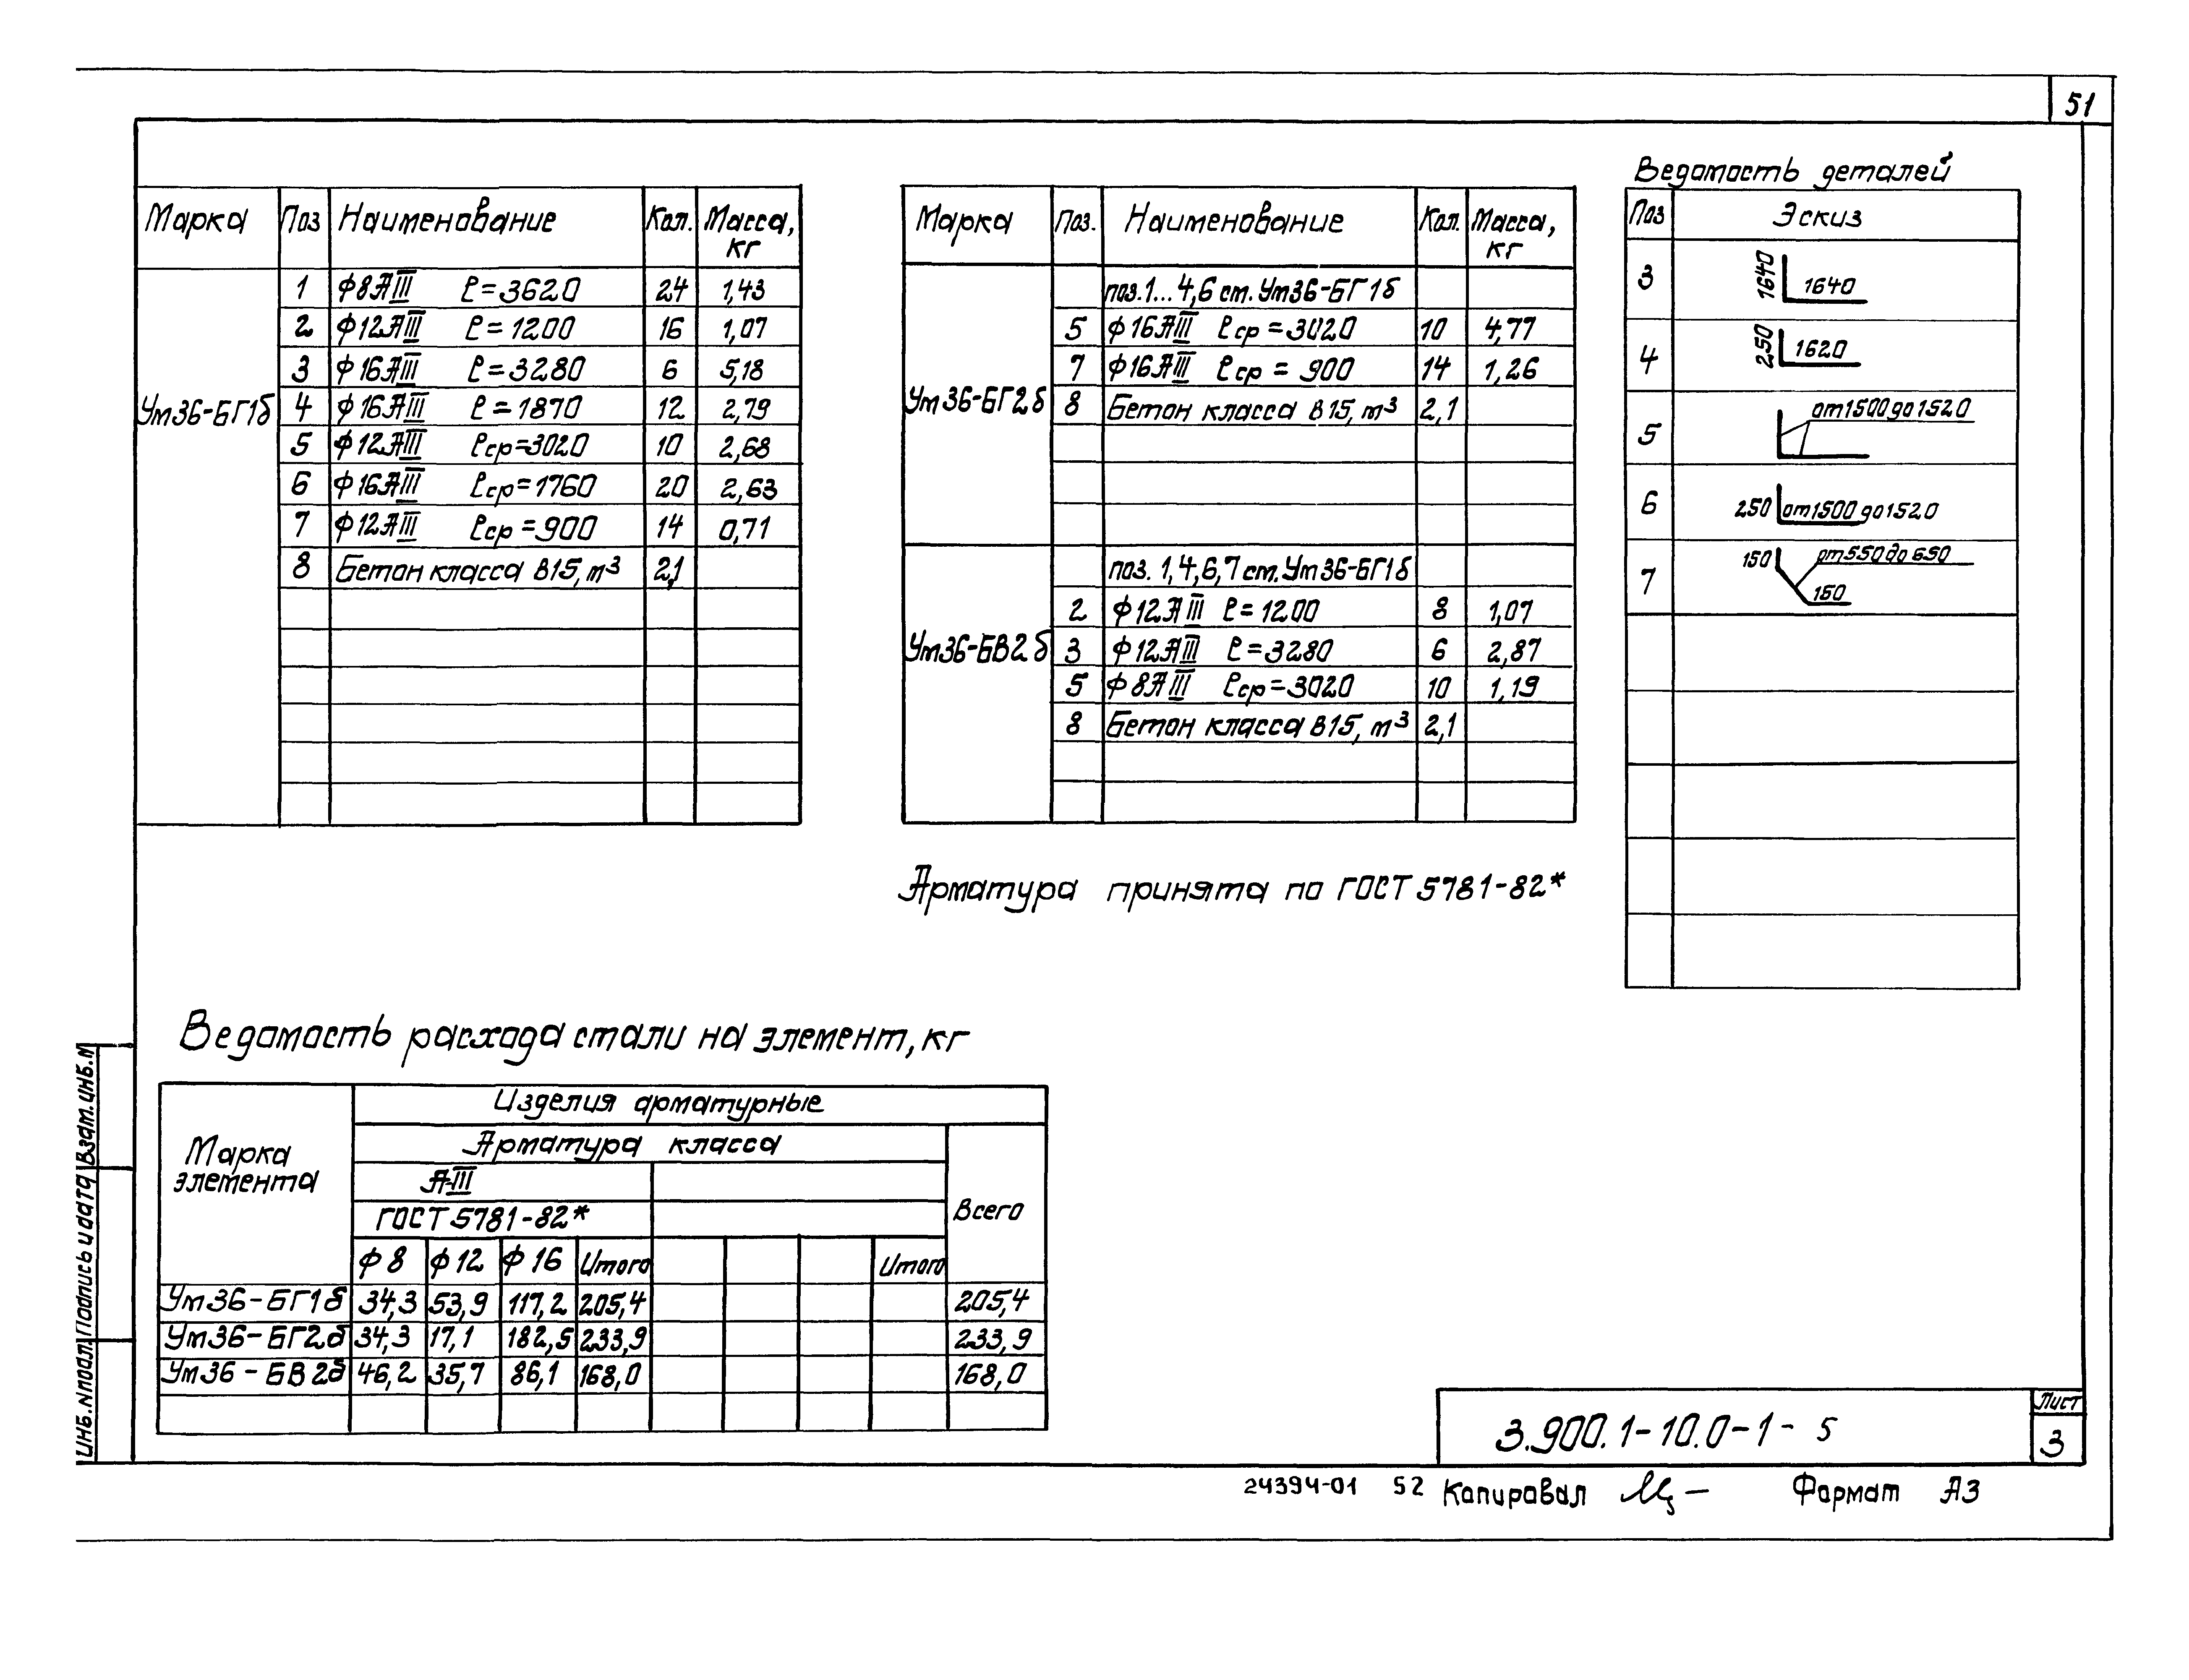 51
Марка Поз Наименование Кол. Масса, кг
Ум36-БГ1б
1 ф8АIII ℓ=3620 24 1,43
2 ф12АIII ℓ=1200 16 1,07
3 ф16АIII ℓ=3280 6 5,18
4 ф16АIII ℓ=1870 12 2,79
5 ф12АIII ℓср=3020 10 2,68
6 ф16АIII ℓср=1760 20 2,63
7 ф12АIII ℓср=900 14 0,71
8 Бетон класса В15, м³ 2,1
Марка Поз. Наименование Кол. Масса, кг
Ум36-БГ2б
поз.1...4,6 ст. Ум36-БГ1б
5 ф16АIII ℓср=3020 10 4,77
7 ф16АIII ℓср=900 14 1,26
8 Бетон класса В15, м³ 2,1
Ум36-БВ2б
поз. 1,4,6,7 ст. Ум36-БГ1б
2 ф12АIII ℓ=1200 8 1,07
3 ф12АIII ℓ=3280 6 2,87
5 ф8АIII ℓср=3020 10 1,19
8 Бетон класса В15, м³ 2,1
Ведомость деталей
Поз Эскиз
3 1640 1640
4 250 1620
5 от1500до1520
6 250 от1500до1520
7 150 от550до650
150
Арматура принята по ГОСТ 5781-82*
Ведомость расхода стали на элемент, кг
Марка элемента
Изделия арматурные
Арматура класса
А-III
ГОСТ 5781-82*
Всего
ф8 ф12 ф16 Итого Итого
Ум36-БГ1б 34,3 53,9 117,2 205,4 205,4
Ум36-БГ2б 34,3 17,1 182,5 233,9 233,9
Ум36-БВ2б 46,2 35,7 86,1 168,0 168,0
Инв.Nподл. Подпись и дата Взам.инв.N
3.900.1-10.0-1-5
Лист
3
24394-01 52 Копировал Формат А3